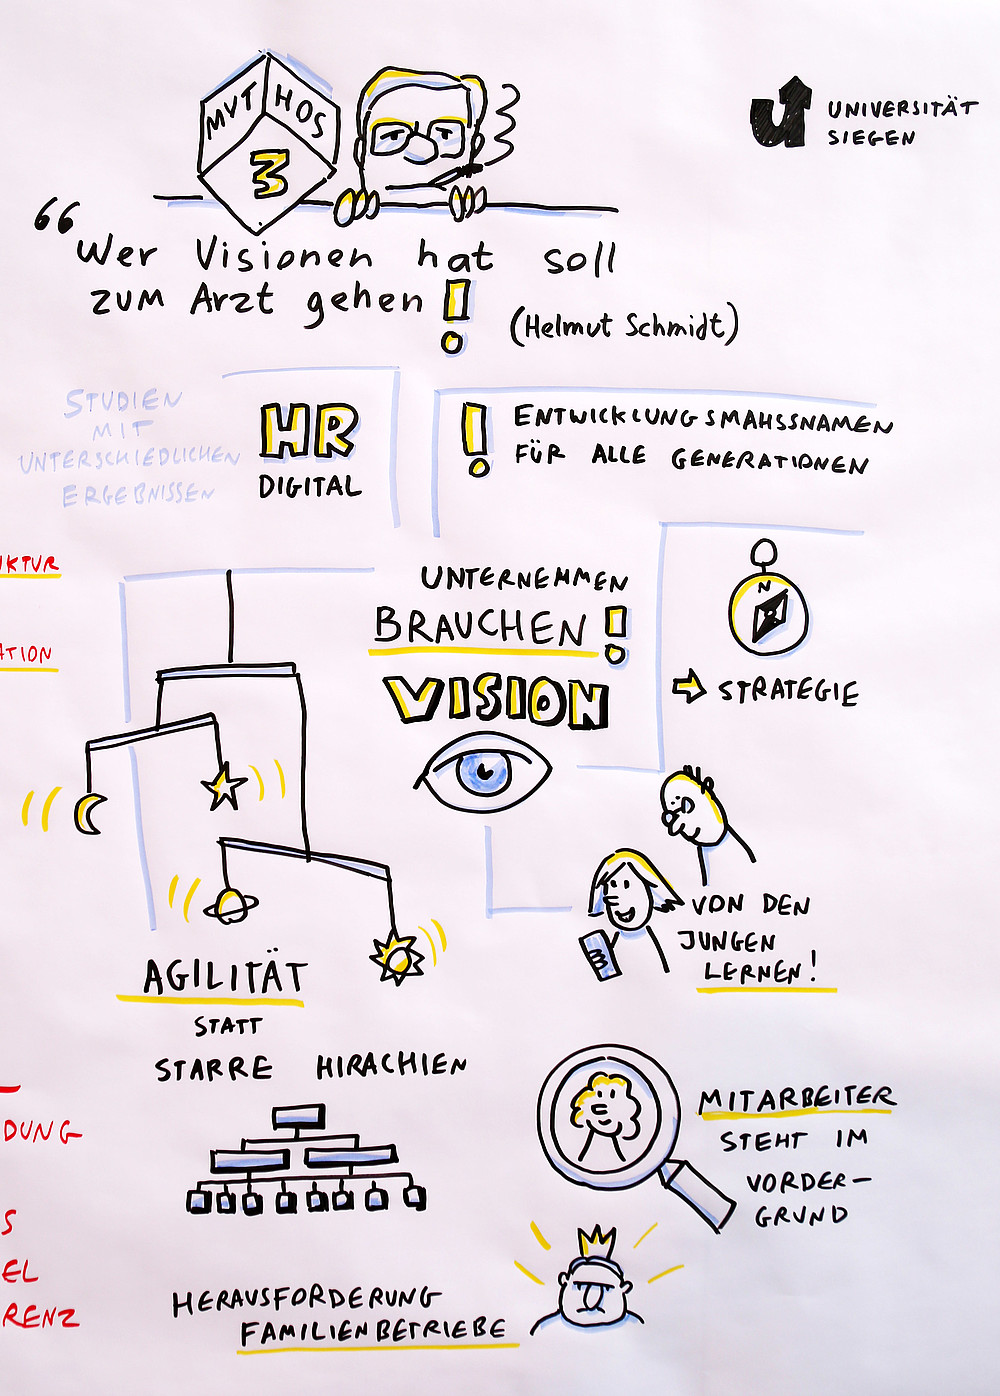 MYTHOS
3
UNIVERSITÄT
SIEGEN
"Wer Visionen hat soll
zum Arzt gehen!
(Helmut Schmidt)
STUDIEN
MIT
UNTERSCHIEDLICHEN
ERGEBNISSEN
HR
DIGITAL
! ENTWICKLUNGSMAHSSNAMEN
FÜR ALLE GENERATIONEN
UKTUR
ATION
UNTERNEHMEN
BRAUCHEN!
VISION
N
→ STRATEGIE
VON DEN
JUNGEN
LERNEN!
AGILITÄT
STATT
STARRE HIRACHIEN
DUNG
S
EL
RENZ
MITARBEITER
STEHT IM
VORDER-
GRUND
HERAUSFORDERUNG
FAMILIENBETRIEBE